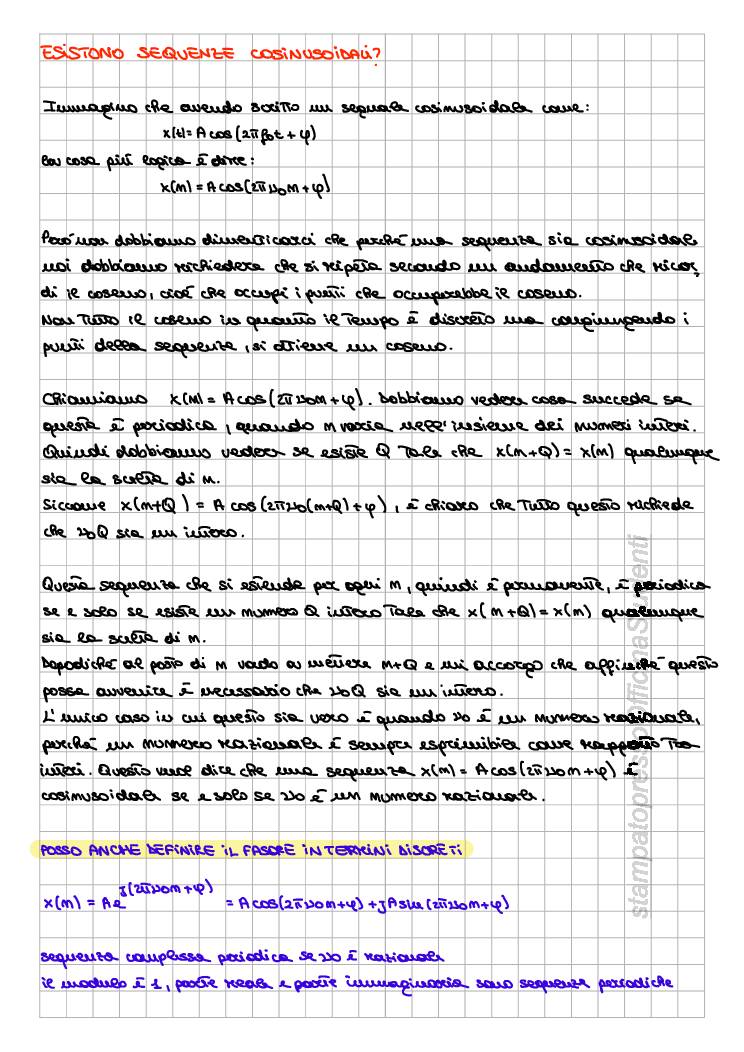 ESISTONO SEQUENZE COSINUSOIDALI?
Immagino che avendo scritto un segnale cosinusoidale come:
x(t)= A cos(2πf₀t + φ)
la cosa più logica è dire:
x(m) = A cos(2πν₀m + φ)
Però non dobbiamo dimenticarci che perché una sequenza sia cosinusoidale
noi dobbiamo richiedere che si ripeta secondo un andamento che ricor
di il coseno, cioè che occupi i punti che occuperebbe il coseno.
Non tutto il coseno in quanto il tempo è discreto ma congiungendo i
punti della sequenza, si ottiene un coseno.
Chiamiamo x(m) = A cos(2πν₀m + φ). Dobbiamo vedere cosa succede se
questa è periodica, quando m varia nell'insieme dei numeri interi.
Quindi dobbiamo vedere se esiste Q tale che x(m+Q) = x(m) qualunque
sia la scelta di m.
Siccome x(m+Q) = A cos(2πν₀(m+Q) + φ), è chiaro che tutto questo richiede
che ν₀Q sia un intero.
Questa sequenza che si estende per ogni m, quindi è permanente, è periodica
se e solo se esiste un numero Q intero tale che x(m+Q) = x(m) qualunque
sia la scelta di m.
Dopodiché al posto di m vado a mettere m+Q e mi accorgo che affinché questo
possa avvenire è necessario che ν₀Q sia un intero.
L'unico caso in cui questo sia vero è quando ν₀ è un numero razionale,
perché un numero razionale è sempre esprimibile come rapporto tra
interi. Questo vuol dire che una sequenza x(m) = A cos(2πν₀m + φ) è
cosinusoidale se e solo se ν₀ è un numero razionale.
POSSO ANCHE DEFINIRE IL FASORE IN TERMINI DISCRETI
x(m) = A e^j(2πν₀m+φ) = A cos(2πν₀m+φ) + jA sin(2πν₀m+φ)
sequenza complessa periodica se ν₀ è razionale
il modulo è 1, parte reale e parte immaginaria sono sequenze periodiche
stampatopressoOfficinaStudenti